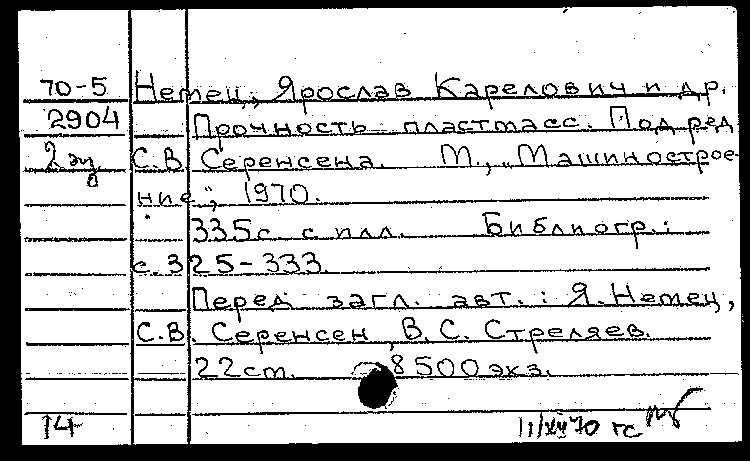 70-5 Немец, Ярослав Карелович и др.
2904 Прочность пластмасс. Под ред
2 эк С.В. Серенсена. М., „Машинострое-
ние", 1970.
335с. с илл. Библиогр.:
с. 325-333.
Перед загл. авт.: Я. Немец,
С.В. Серенсен, В.С. Стреляев.
22 см. 8500 экз.
14 11/XII 70 гс